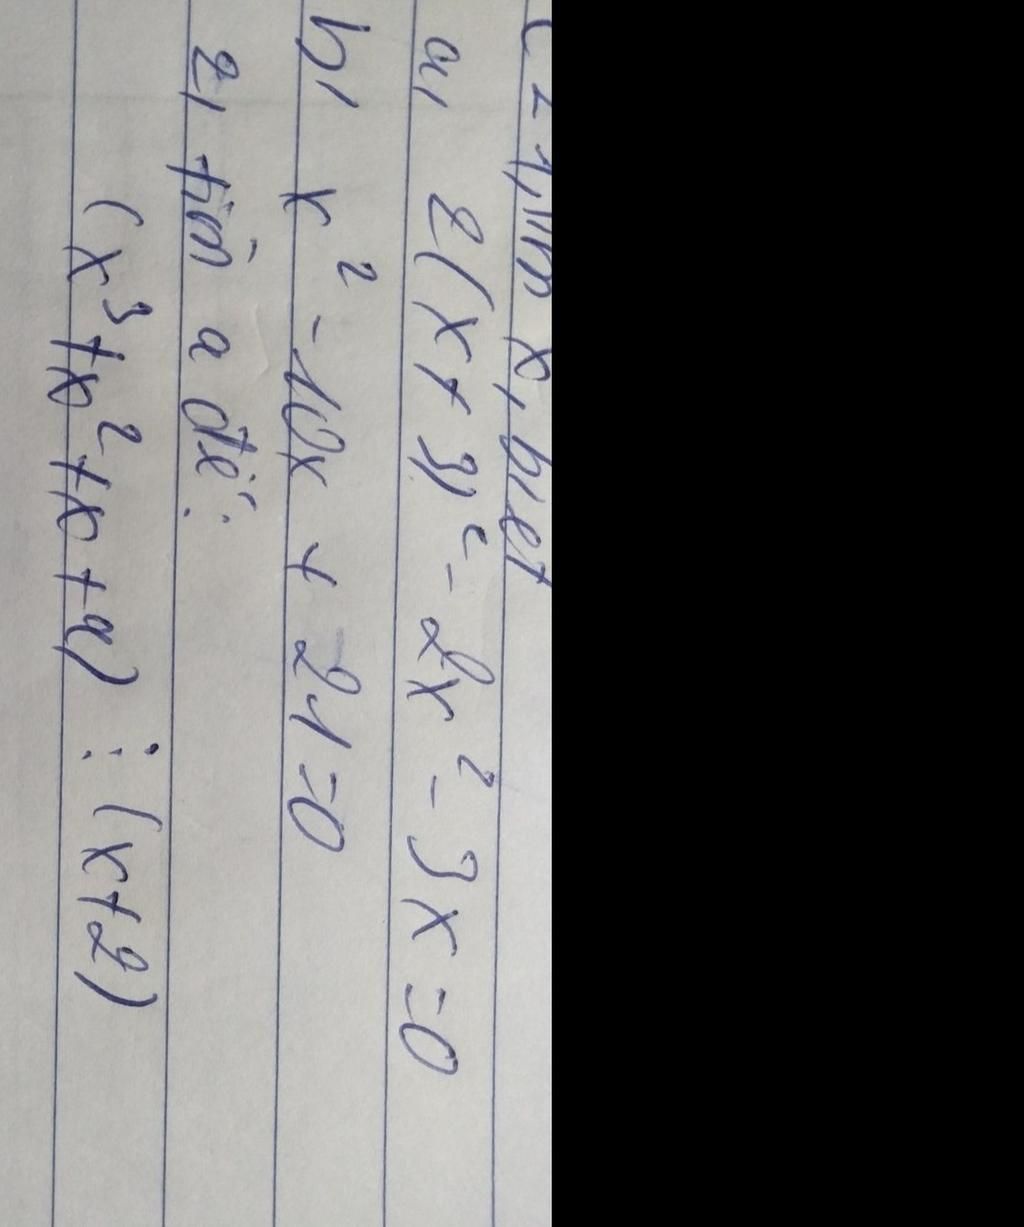 1, tìm x, biết
a, 2(x + 3)² - 2x² - 3x = 0
b, x² - 10x + 21 = 0
2, tìm a để:
(x³ + x² + x + a) ⋮ (x + 2)